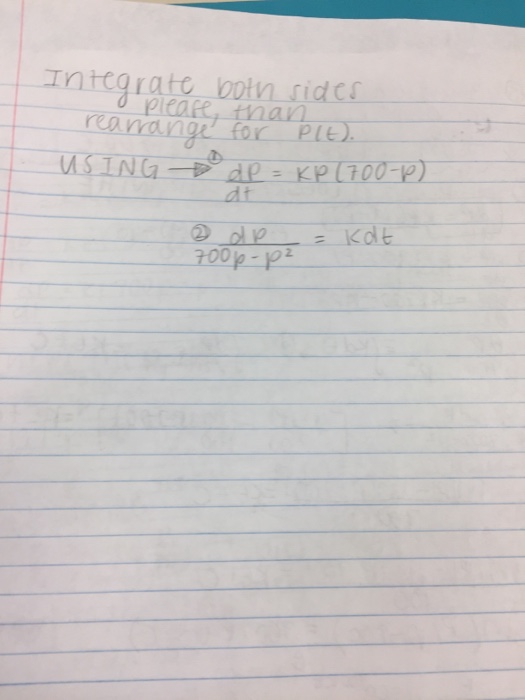 Integrate both sides
please, than
rearrange for P(t).
USING → ① dp/dt = KP(700-P)
② dp/700p-p² = Kdt